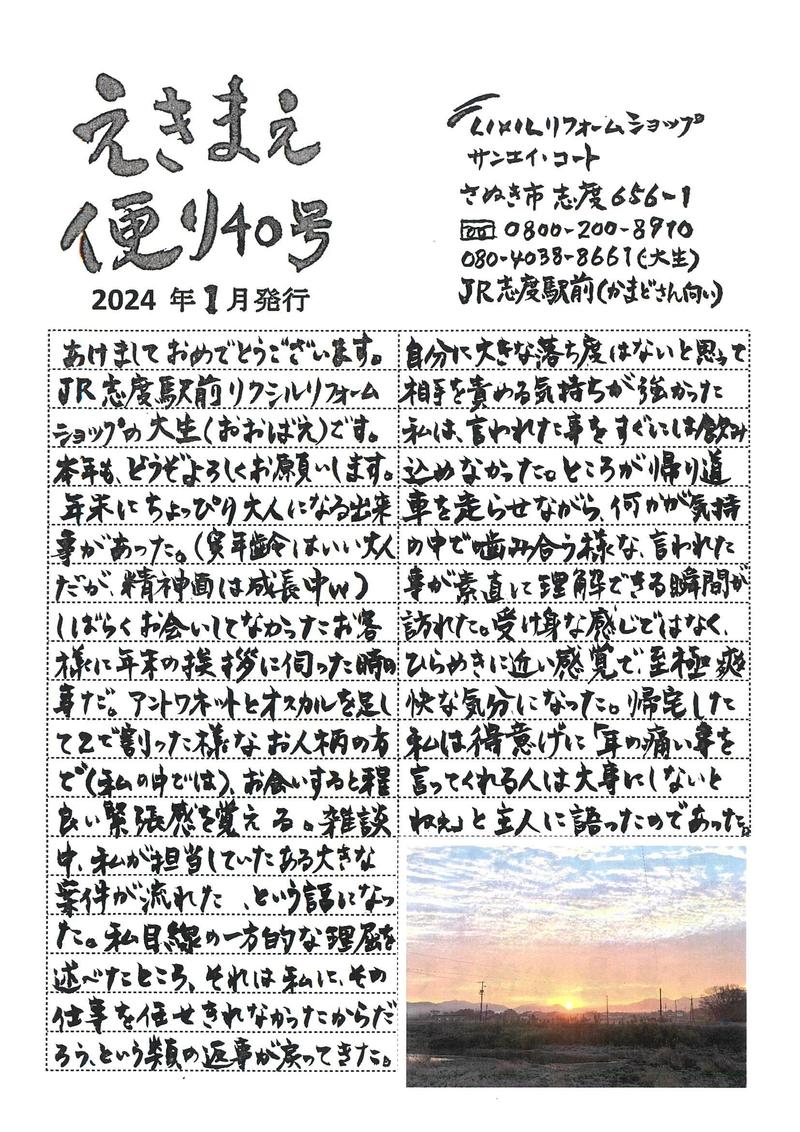 えきまえ
便り40号
2024 年1月発行
LIXILリフォームショップ
サンエイ・コート
さぬき市 志度656-1
0800-200-8910
080-4038-8661(大生)
JR志度駅前(かまどさん向い)
あけましておめでとうございます。
JR志度駅前リクシルリフォーム
ショップの大生(おおばえ)です。
本年も、どうぞよろしくお願いします。
年末にちょっぴり大人になる出来
事があった。(実年齢はいい大人
だが、精神面は成長中w)
しばらくお会いしてなかったお客
様に年末の挨拶に伺った時の
事だ。アントワネットとオスカルを足し
て2で割った様なお人柄の方
で(私の中では)、お会いすると程
良い緊張感を覚える。雑談
中、私が担当していたある大きな
案件が流れた、という話になっ
た。私目線の一方的な理屈を
述べたところ、それは私に、その
仕事を任せきれなかったからだ
ろう、という類の返事が戻ってきた。
自分に大きな落ち度はないと思って
相手を責める気持ちが強かった
私は、言われた事をすぐには飲み
込めなかった。ところが帰り道
車を走らせながら、何かが気持
の中で噛み合う様な、言われた
事が素直に理解できる瞬間が
訪れた。受け身な感じではなく、
ひらめきに近い感覚で、至極爽
快な気分になった。帰宅した
私は得意げに「耳の痛い事を
言ってくれる人は大事にしないと
ねぇ」と主人に語ったのであった。